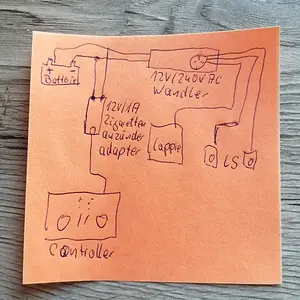 Batterie
12V/240V AC
Wandler
12V/1A
Zigaretten
anzünder
adapter
Lappie
LS
Controller